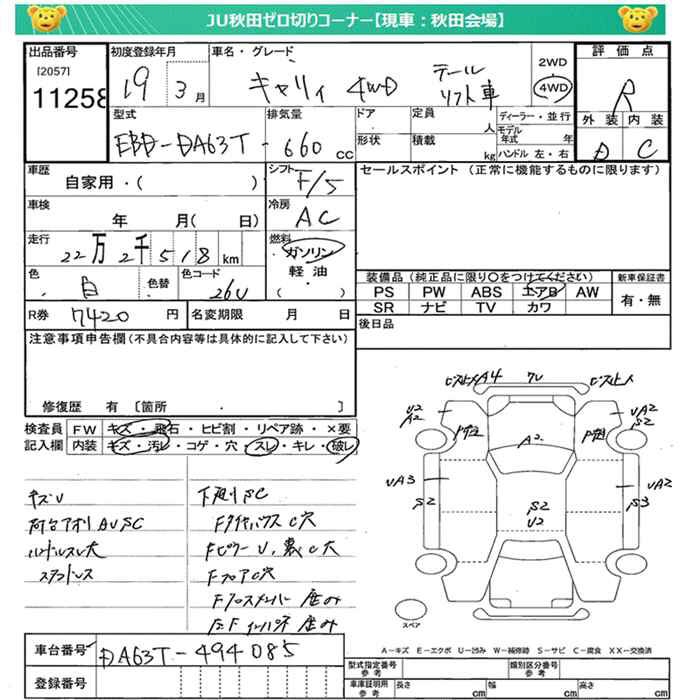 JU秋田ゼロ切りコーナー【現車：秋田会場】
出品番号
［2057］
11258
初度登録年月
19 3月
車名・グレード
キャリィ 4WD テールリフト車
2WD
4WD
評価点
R
外装 内装
D C
型式
EBD-DA63T-
排気量
660cc
ドア
形状
定員
人
積載
kg
ディーラー・並行
モデル年式 年
ハンドル 左・右
車歴
自家用・( )
シフト
F/5
セールスポイント（正常に機能するものに限ります）
車検
年 月( 日)
冷房
AC
走行
22万2千518km
燃料
ガソリン
軽油
・( )
色
白
色替
色コード
26U
装備品（純正品に限り○をつけてください）
PS PW ABS エアB AW
SR ナビ TV カワ
新車保証書
有・無
R券 7420円
名変期限 月 日
後日品
注意事項申告欄（不具合内容等は具体的に記入して下さい）
修復歴 有〔箇所 ．〕
検査員記入欄
FW キズ・飛石・ヒビ割・リペア跡・×要
内装 キズ・汚レ・コゲ・穴・スレ・キレ・破レ
キズU
荷台アオリAUSC
ハンドルスレ大
スタッドレス
下廻りSC
FタイヤハウスC穴
FピラーU、裏C大
FフロアC穴
Fクロスメンバー凹み
A4
UA2
S2
U2
A2
A2
UA3
S2
S2
U2
UA2
S3
スペア
A－キズ E－エクボ U－凹み W－補修跡 S－サビ C－腐食 XX－交換済
車台番号
DA63T-494085
登録番号
型式指定番号 参考
類別区分番号 参考
車庫証明用 参考
長さ cm
幅 cm
高さ cm